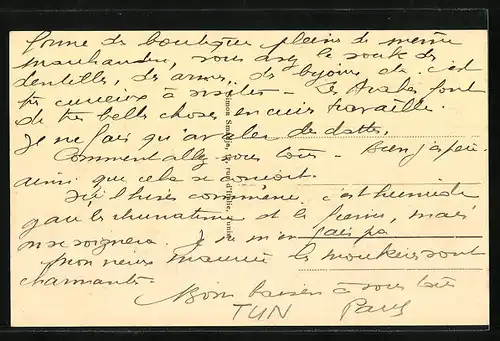 forme de boutiques pleines de même
marchandise, vous avez le souk des
dentelles, des armes, des bijoux etc. c'est
très curieux à visiter - Les Arabes font
de très belles choses en cuir travaillé.
Je ne fais qu'avaler des dattes.
Comment allez vous tous - Bien j'espère
ainsi que cela se conçoit.
l'hiver commence, c'est humide
gare les rhumatisme et la mais
on se soignera. Je ne m'en fais pas
mon neveu Maurice les moukères sont
charmantes.
Mon baiser à vous tous
TUN
Simon Smadja, rue d'Italie, Tunis